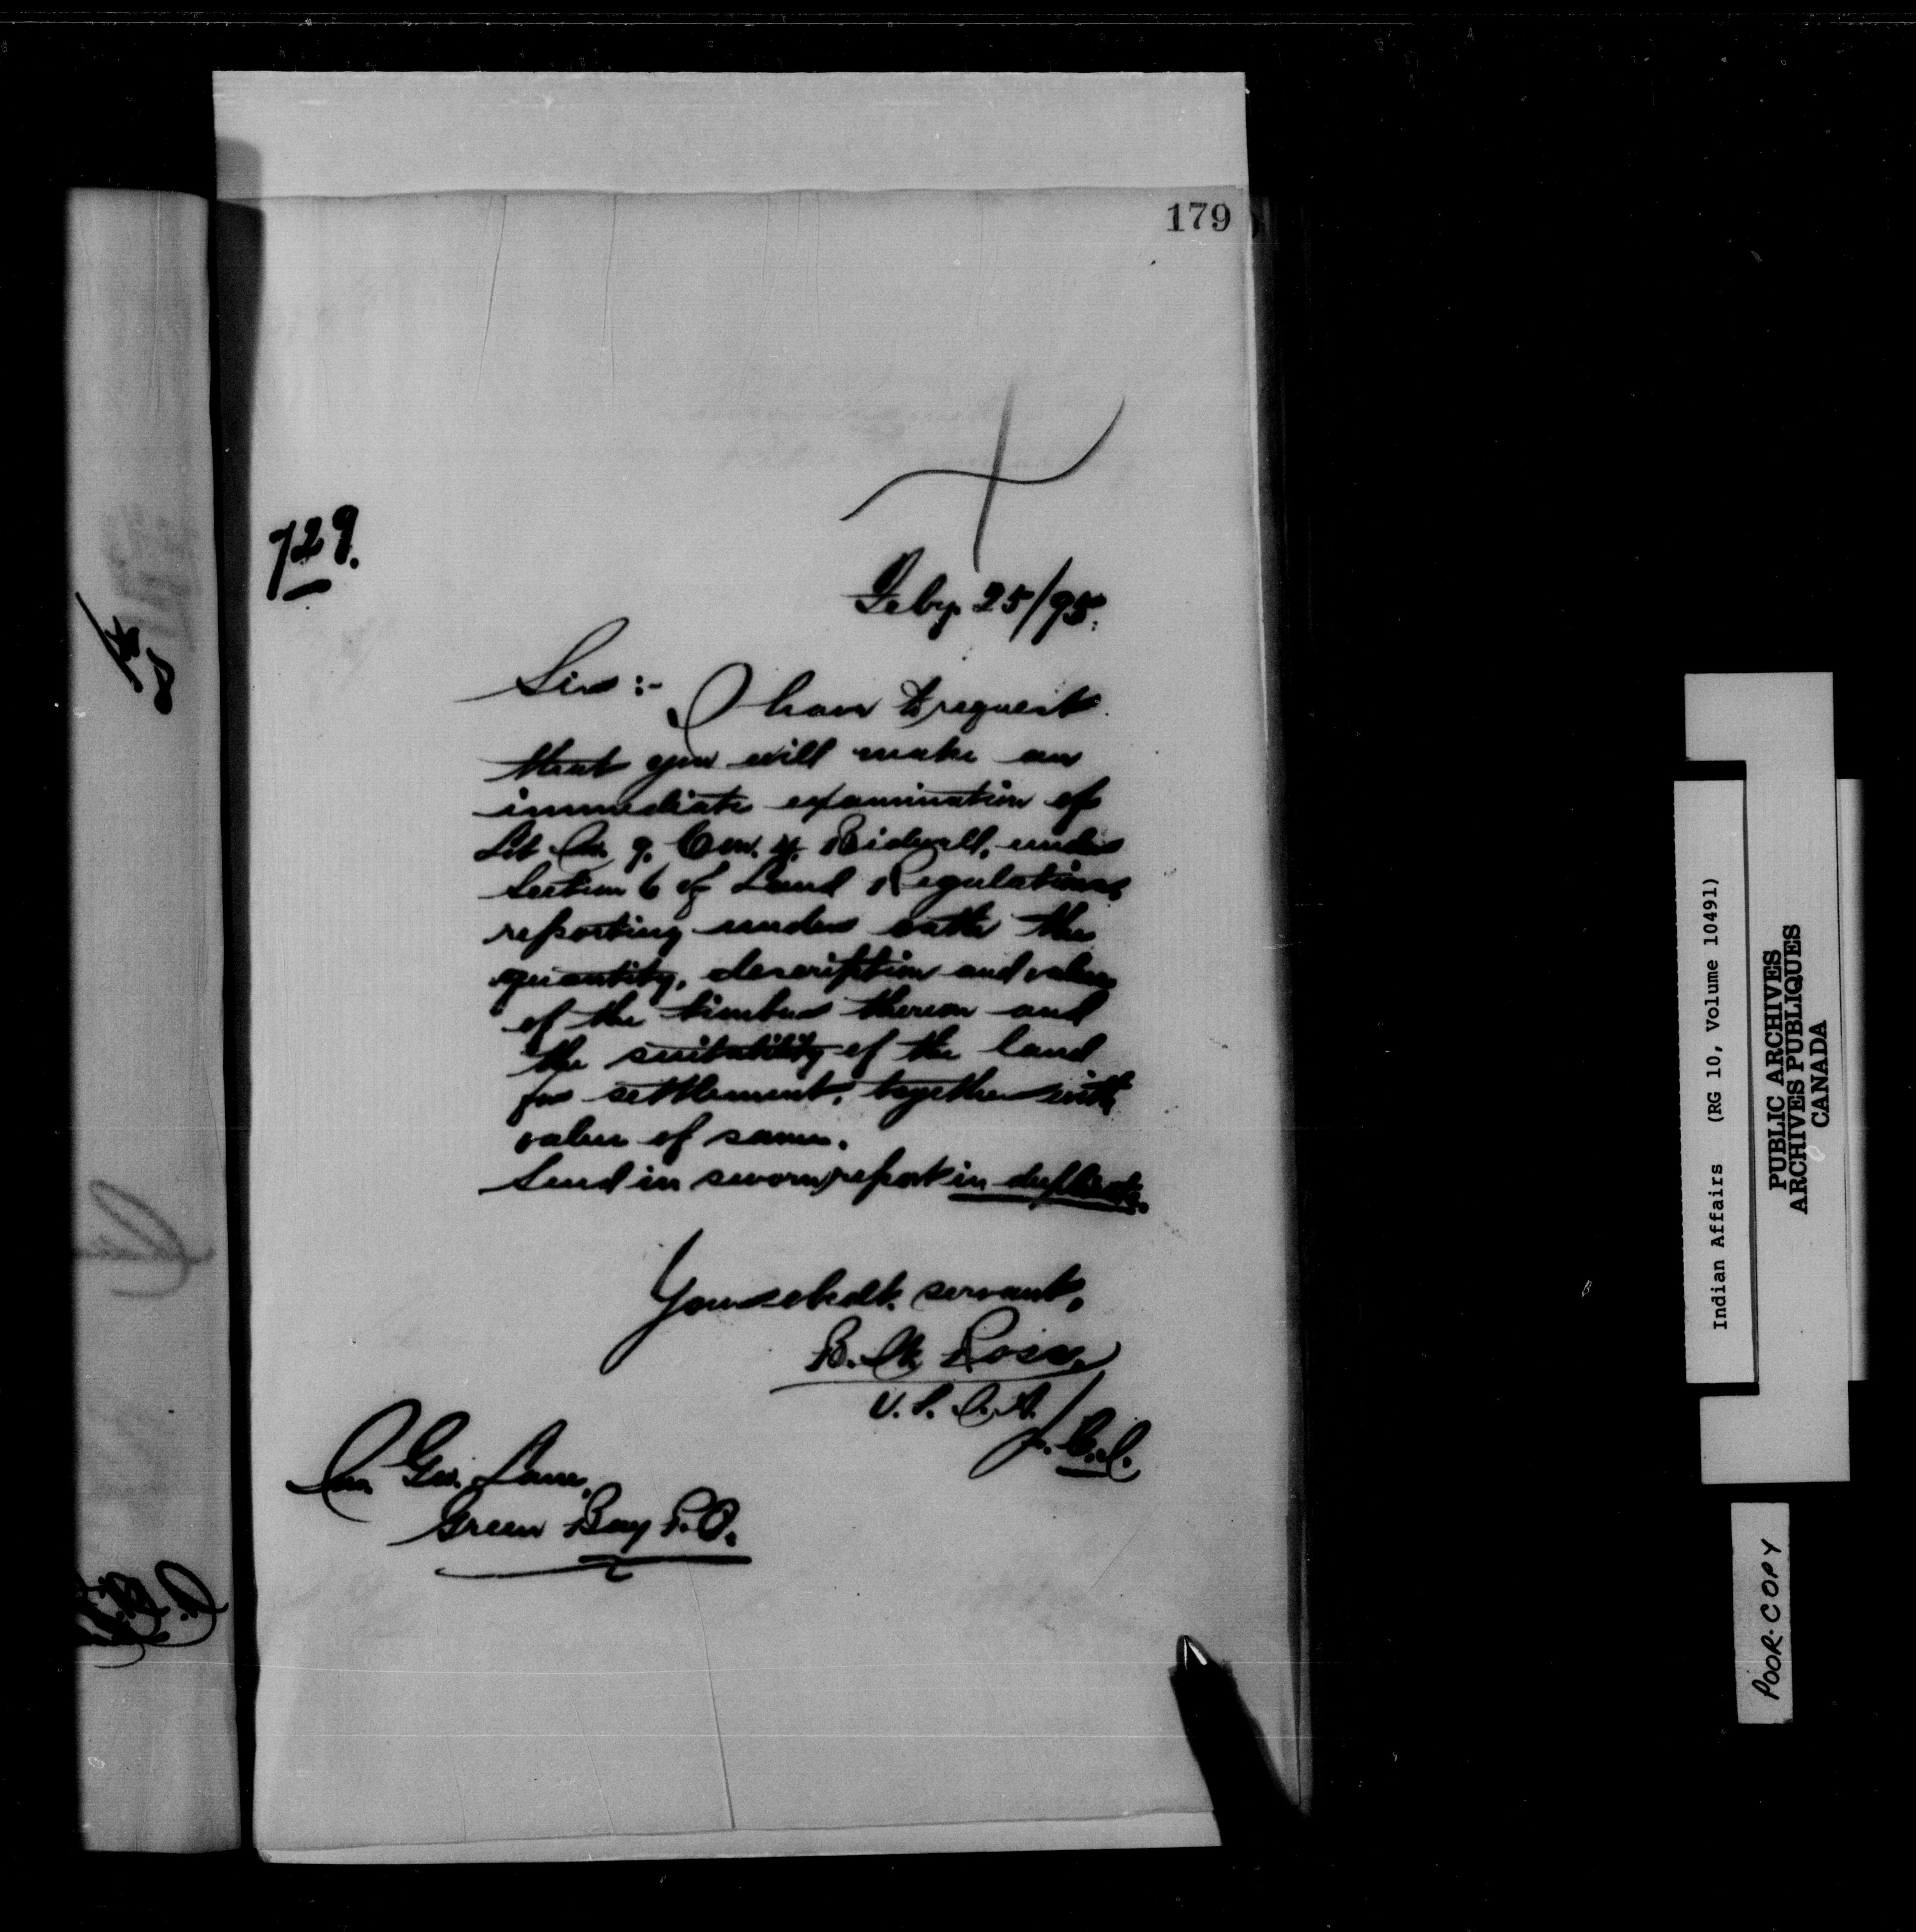 179
729.
Feby. 25/95.
Sir :-
I have to request
that you will make an
immediate examination of
Lot No. 9. Con. 4. Bidwell, under
Section 6 of Land Regulations
reporting under oath the
quantity, description and value
of the timber thereon and
the suitability of the land
for settlement, together with
value of same.
Send in sworn report in duplicate.
Your obedt. servant,
B. W. Ross
V. S. I. A.
Geo. Lane,
Green Bay P.O.
Indian Affairs (RG 10, Volume 10491)
PUBLIC ARCHIVES
ARCHIVES PUBLIQUES
CANADA
POOR COPY